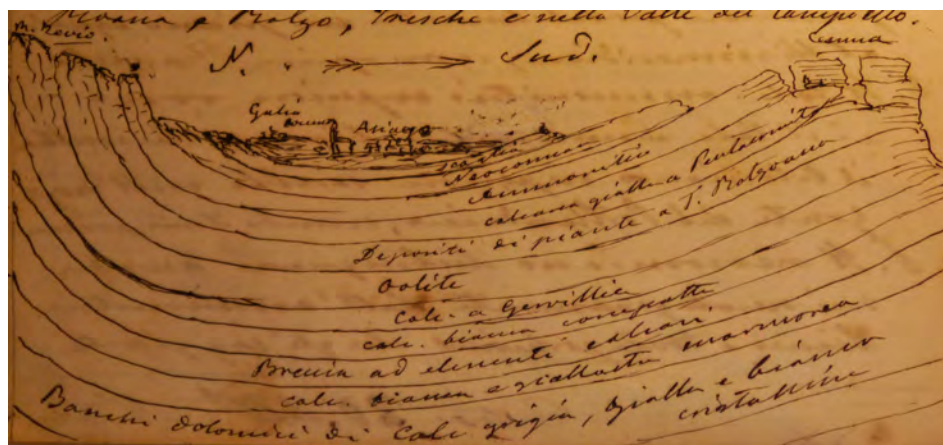 Roana e Rotzo, Tresche e nella Valle del Campiello.
M. Mevio
Cesuna
N. Sud.
Gallio
Asiago
Scaglia
Neocomiano
Ammonitico
calcarea gialla a Pentacriniti
Depositi di piante a T. Rotzoana
Oolite
Calc. a Gervillie
calc. bianca compatta
Breccia ad elementi calcari
calc. bianca e giallastra marmorea
Banchi dolomici di Calc. grigia, gialla e bianca
cristallina